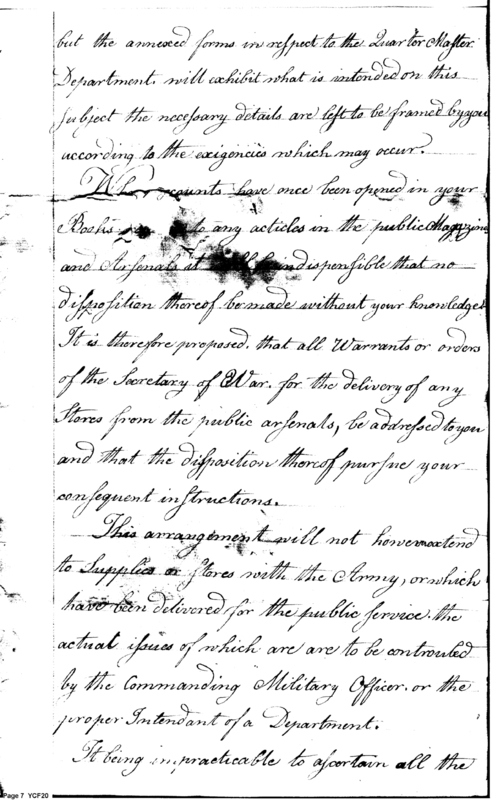 but the annexed forms in respect to the Quarter Master
Department will exhibit what is intended on this
subject the necessary details are left to be framed by you
according to the exigencies which may occur.
When counts have once been opened in your
Books to any acticles in the public Magazine
and Arsenals it indispensible that no
disposition thereof be made without your knowledge
It is therefore proposed. that all Warrants or orders
of the Secretary of War. for the delivery of any
Stores from the public arsenals, be addressed to you
and that the disposition thereof pursue your
consequent instructions.
This arrangement will not however extend
to Supplies or Stores with the Army, or which
have been delivered for the public service. the
actual issues of which are are to be controuled
by the Commanding Military Officer. or the
proper Intendant of a Department.
It being impracticable to ascertain all the
Page 7 YCF20